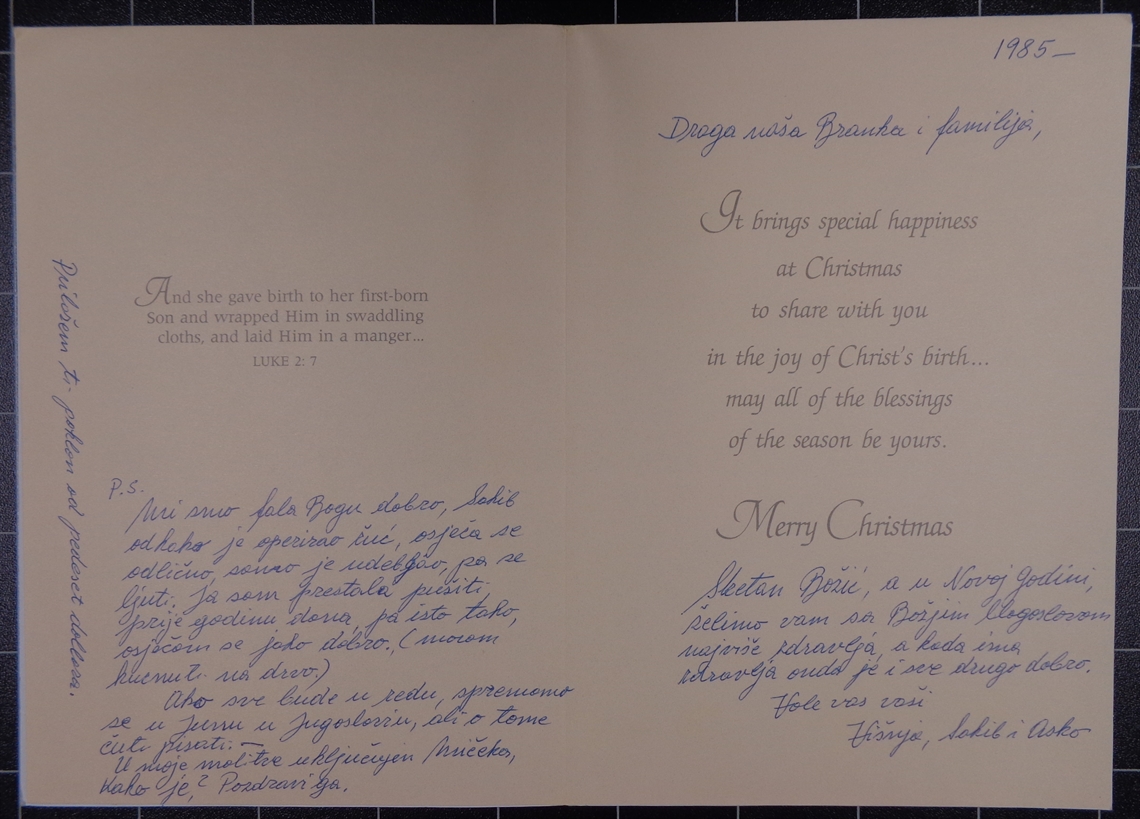 1985—
Draga naša Branka i familija,
It brings special happiness
at Christmas
to share with you
in the joy of Christ's birth...
may all of the blessings
of the season be yours.
Merry Christmas
Sretan Božić, a u Novoj Godini,
želimo vam sa Božjim blagoslovom
najviše zdravlja, a kada ima
zdravlja onda je i sve drugo dobro.
Vole vas vaši
Višnja, Sakib i Asko
And she gave birth to her first-born
Son and wrapped Him in swaddling
cloths, and laid Him in a manger...
LUKE 2: 7
P.S.
Mi smo fala Bogu dobro, Sakib
odkako je operirao čuć, osjeća se
odlično, samo je udebljao, pa se
ljuti. Ja sam prestala pušiti,
prije godinu dana, pa isto tako,
osjećam se jako dobro. (moram
kucnuti na drvo.)
Ako sve bude u redu, spremamo
se u Junu u Jugoslaviu, ali o tome
ću ti pisati. —
U moje molitve uključujem Mičeka,
kako je? Pozdravi ga.
Prilažem ti poklon od pedeset dollara.